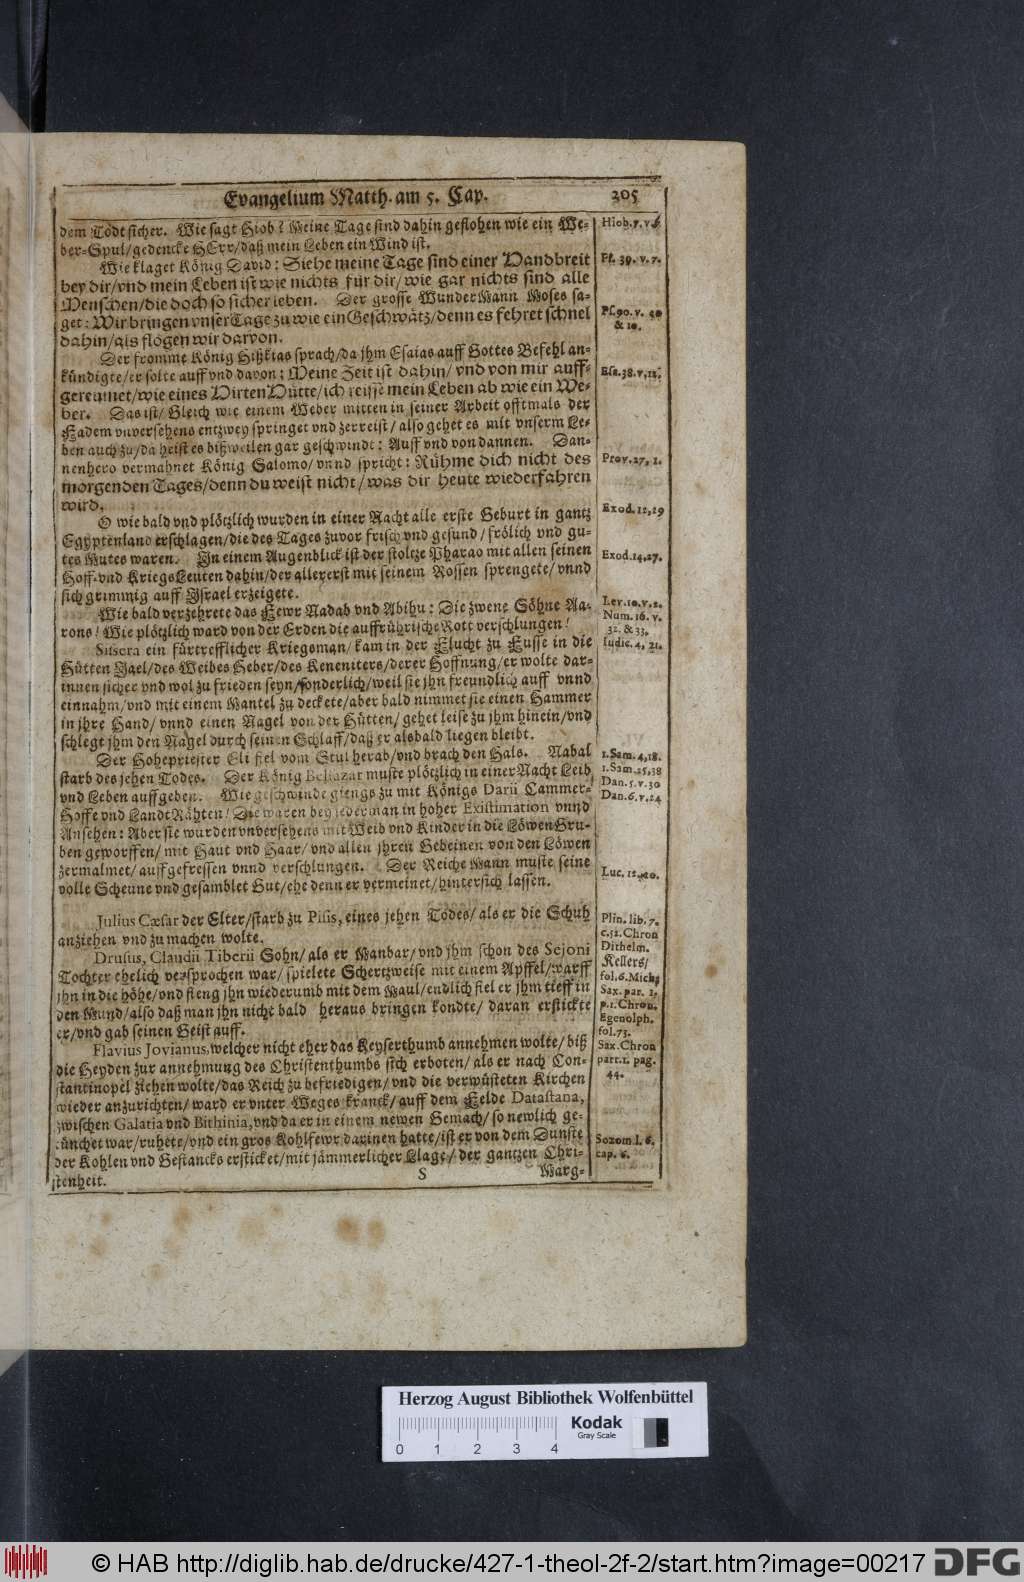 Evangelium Matth. am 5. Cap. 205
dem Todt sicher. Wie sagt Hiob? Meine Tage sind dahin geflohen wie ein We-
ber-Spul/gedencke HErr/daß mein Leben ein Wind ist.
Wie klaget König David: Siehe meine Tage sind einer Handbreit
bey dir/vnd mein Leben ist wie nichts für dir/wie gar nichts sind alle
Menschen/die doch so sicher leben. Der grosse WunderMann Moses sa-
get: Wir bringen vnser Tage zu wie ein Geschwätz/denn es fehret schnel
dahin/als flögen wir darvon.
Der fromme König Hißkias sprach/da jhm Esaias auff Gottes Befehl an-
kündigte/er solte auff vnd davon; Meine Zeit ist dahin/vnd von mir auff-
gereumet/wie eines Hirten Hütte/ich reisse mein Leben ab wie ein We-
ber. Das ist/Gleich wie einem Weber mitten in seiner Arbeit offtmals der
Fadem vnversehens entzwey springet vnd zerreist/also gehet es mit vnserm Le-
ben auch zu/da heist es bißweilen gar geschwinde: Auff vnd von dannen. Dan-
nenhero vermahnet König Salomo/vnnd spricht: Rühme dich nicht des
morgenden Tages/denn du weist nicht/was dir heute wiederfahren
wird.
O wie bald vnd plötzlich wurden in einer Nacht alle erste Geburt in gantz
Egyptenland erschlagen/die des Tages zuvor frisch vnd gesund/frölich vnd gu-
tes Mutes waren. In einem Augenblick ist der stoltze Pharao mit allen seinen
Hoff- vnd KriegsLeuten dahin/der allererst mit seinem Rossen sprengete/vnnd
sich grimmig auff Israel erzeigete.
Wie bald verzehrete das Fewr Nadab vnd Abihu: Die zwene Söhne Aa-
rons! Wie plötzlich ward von der Erden die auffrührische Rott verschlungen!
Sissera ein fürtrefflicher Kriegsman/kam in der Flucht zu Fusse in die
Hütten Jael/des Weibes Heber/des Keneniters/derer Hoffnung/er wolte dar-
innen sicher vnd wol zu frieden seyn/sonderlich/weil sie jhn freundlich auff vnnd
einnahm/vnd mit einem Mantel zu deckete/aber bald nimmet sie einen Hammer
in jhre Hand/vnnd einen Nagel von der Hütten/gehet leise zu jhm hinein/vnd
schlegt jhm den Nagel durch seinen Schlaff/daß er alsbald liegen bleibt.
Der Hohepriester Eli fiel vom Stul herab/vnd brach den Hals. Nabal
starb des jehen Todes. Der König Beltazar muste plötzlich in einer Nacht Leib
vnd Leben auffgeben. Wie geschwinde giengs zu mit Königs Darii Cammer-
Hoffe vnd LandtRähten! Die waren bey jederman in hoher Existimation vnnd
Ansehen: Aber sie wurden vnversehens mit Weib vnd Kinder in die LöwenGru-
ben geworffen/mit Haut vnd Haar/vnd allen jhren Gebeinen von den Löwen
zermalmet/auffgefressen vnnd verschlungen. Der Reiche Mann muste seine
volle Scheune vnd gesamblet Gut/ehe denn er vermeinet/hintersich lassen.
Julius Cæsar der Elter/starb zu Pisis, eines jehen Todes/als er die Schuh
anziehen vnd zu machen wolte.
Drusus, Claudii Tiberii Sohn/als er Manbar/vnd jhm schon des Sejoni
Tochter ehelich versprochen war/spielete Schertzweise mit einem Apffel/warff
jhn in die höhe/vnd fieng jhn wiederumb mit dem Maul/endlich fiel er jhm tieff in
den Mund/also daß man jhn nicht bald heraus bringen kondte/daran erstickte
er/vnd gab seinen Geist auff.
Flavius Jovianus, welcher nicht eher das Keyserthumb annehmen wolte/biß
die Heyden zur annehmung des Christenthumbs sich erboten/als er nach Con-
stantinopel ziehen wolte/das Reich zu befriedigen/vnd die verwüsteten Kirchen
wieder anzurichten/ward er vnter Weges kranck/auff dem Felde Datastana,
zwischen Galatia vnd Bithinia, vnd da er in einem newen Gemach/so newlich ge-
tünchet war/ruhete/vnd ein gros Kohlfewr darinen hatte/ist er von dem Dunste
der Kohlen vnd Gestancks ersticket/mit jämmerlicher Klage/der gantzen Chri-
stenheit. S Marg-
Hiob. 7. v. 6.
Ps. 39. v. 7.
Ps. 90. v. 10
& 10.
Esa. 38. v. 12.
Prov. 27, 1.
Exod. 12, 29
Exod. 14, 27.
Lev. 10. v. 2.
Num. 16. v.
32. & 33.
Iudic. 4, 21.
1. Sam. 4, 18.
1. Sam. 25, 38
Dan. 5. v. 30
Dan. 6. v. 24
Luc. 12, 20.
Plin. lib. 7.
c. 53. Chron
Dithelm.
Kellers/
fol. 6. Mich.
Sax. par. 1,
p. 1. Chron.
Egenolph.
fol. 73.
Sax. Chron
part. 1. pag.
44.
Sozom. l. 6.
cap. 6.
Herzog August Bibliothek Wolfenbüttel
0 1 2 3 4
Kodak
Gray Scale
© HAB http://diglib.hab.de/drucke/427-1-theol-2f-2/start.htm?image=00217 DFG